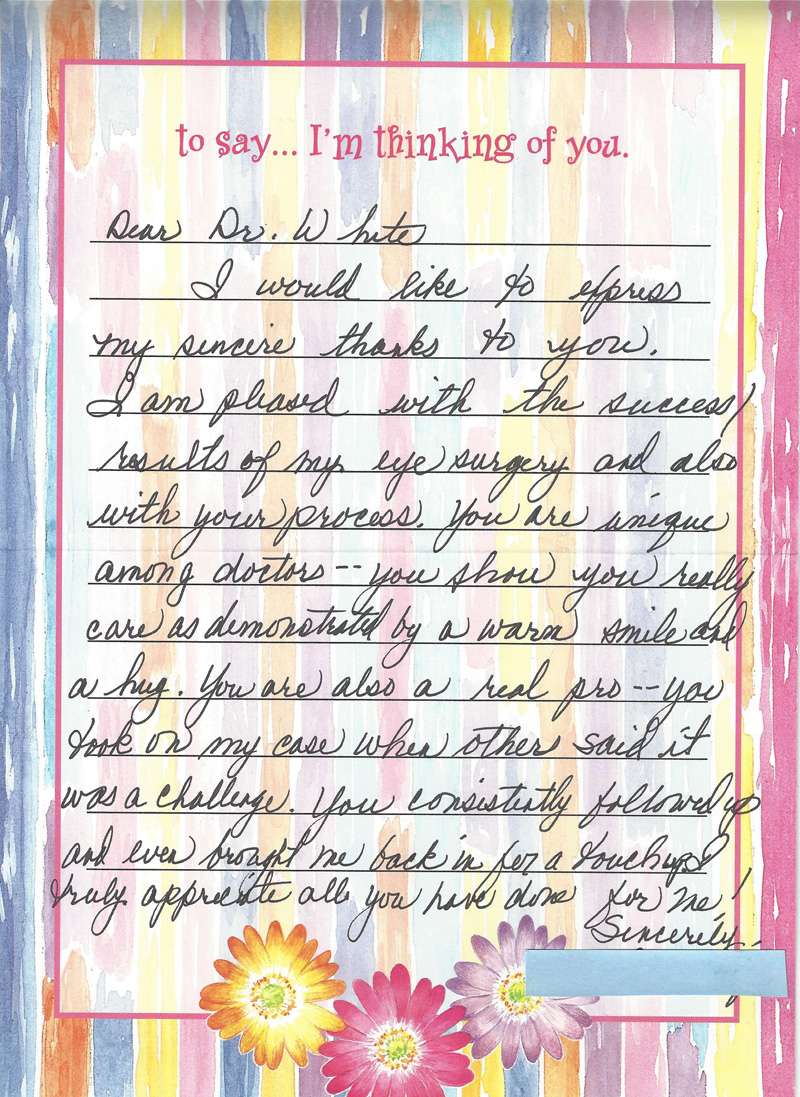 to say... I'm thinking of you.
Dear Dr. White
I would like to express
my sincere thanks to you.
I am pleased with the success/
results of my eye surgery and also
with your process. You are unique
among doctors -- you show you really
care as demonstrated by a warm smile and
a hug. You are also a real pro -- you
took on my case when others said it
was a challenge. You consistently followed up
and even brought me back in for a touchup. I
truly appreciate all you have done for me!
Sincerely,